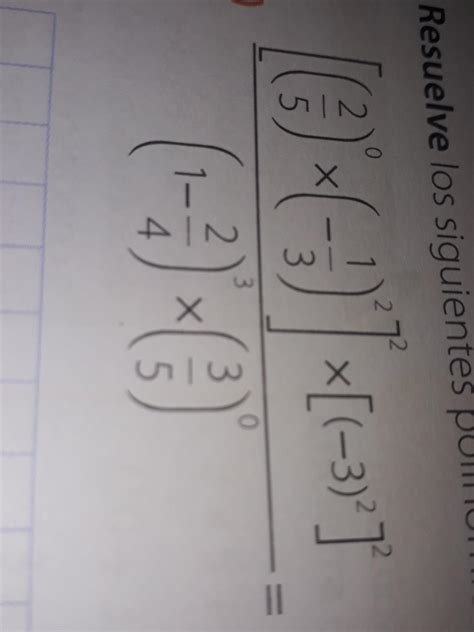 Resuelve los siguientes
[(2/5)⁰ × (-1/3)²]² × [(-3)²]²
=
(1-2/4)³ × (3/5)⁰